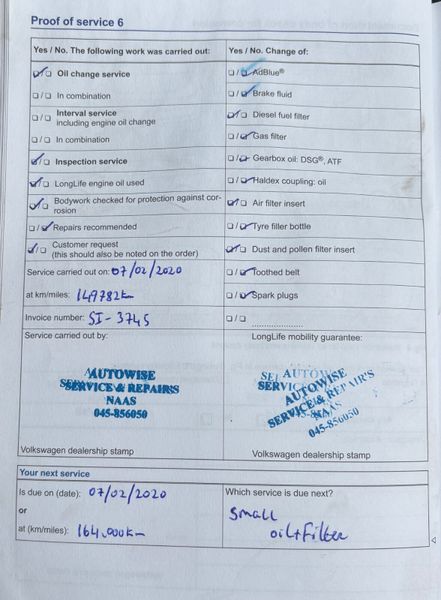 Proof of service 6
Yes / No. The following work was carried out:
Oil change service
In combination
Interval service
including engine oil change
In combination
Inspection service
LongLife engine oil used
Bodywork checked for protection against cor-
rosion
Repairs recommended
Customer request
(this should also be noted on the order)
Service carried out on: 07/02/2020
at km/miles: 149782km
Invoice number: SI-3745
Service carried out by:
AUTOWISE
SERVICE & REPAIR'S
NAAS
045-856050
Volkswagen dealership stamp
Yes / No. Change of:
AdBlue®
Brake fluid
Diesel fuel filter
Gas filter
Gearbox oil: DSG®, ATF
Haldex coupling: oil
Air filter insert
Tyre filler bottle
Dust and pollen filter insert
Toothed belt
Spark plugs
LongLife mobility guarantee:
AUTOWISE
SERVICE & REPAIR'S
NAAS
045-856050
Volkswagen dealership stamp
Your next service
Is due on (date): 07/02/2020
or
at (km/miles): 164,000km
Which service is due next?
Small
oil+filter